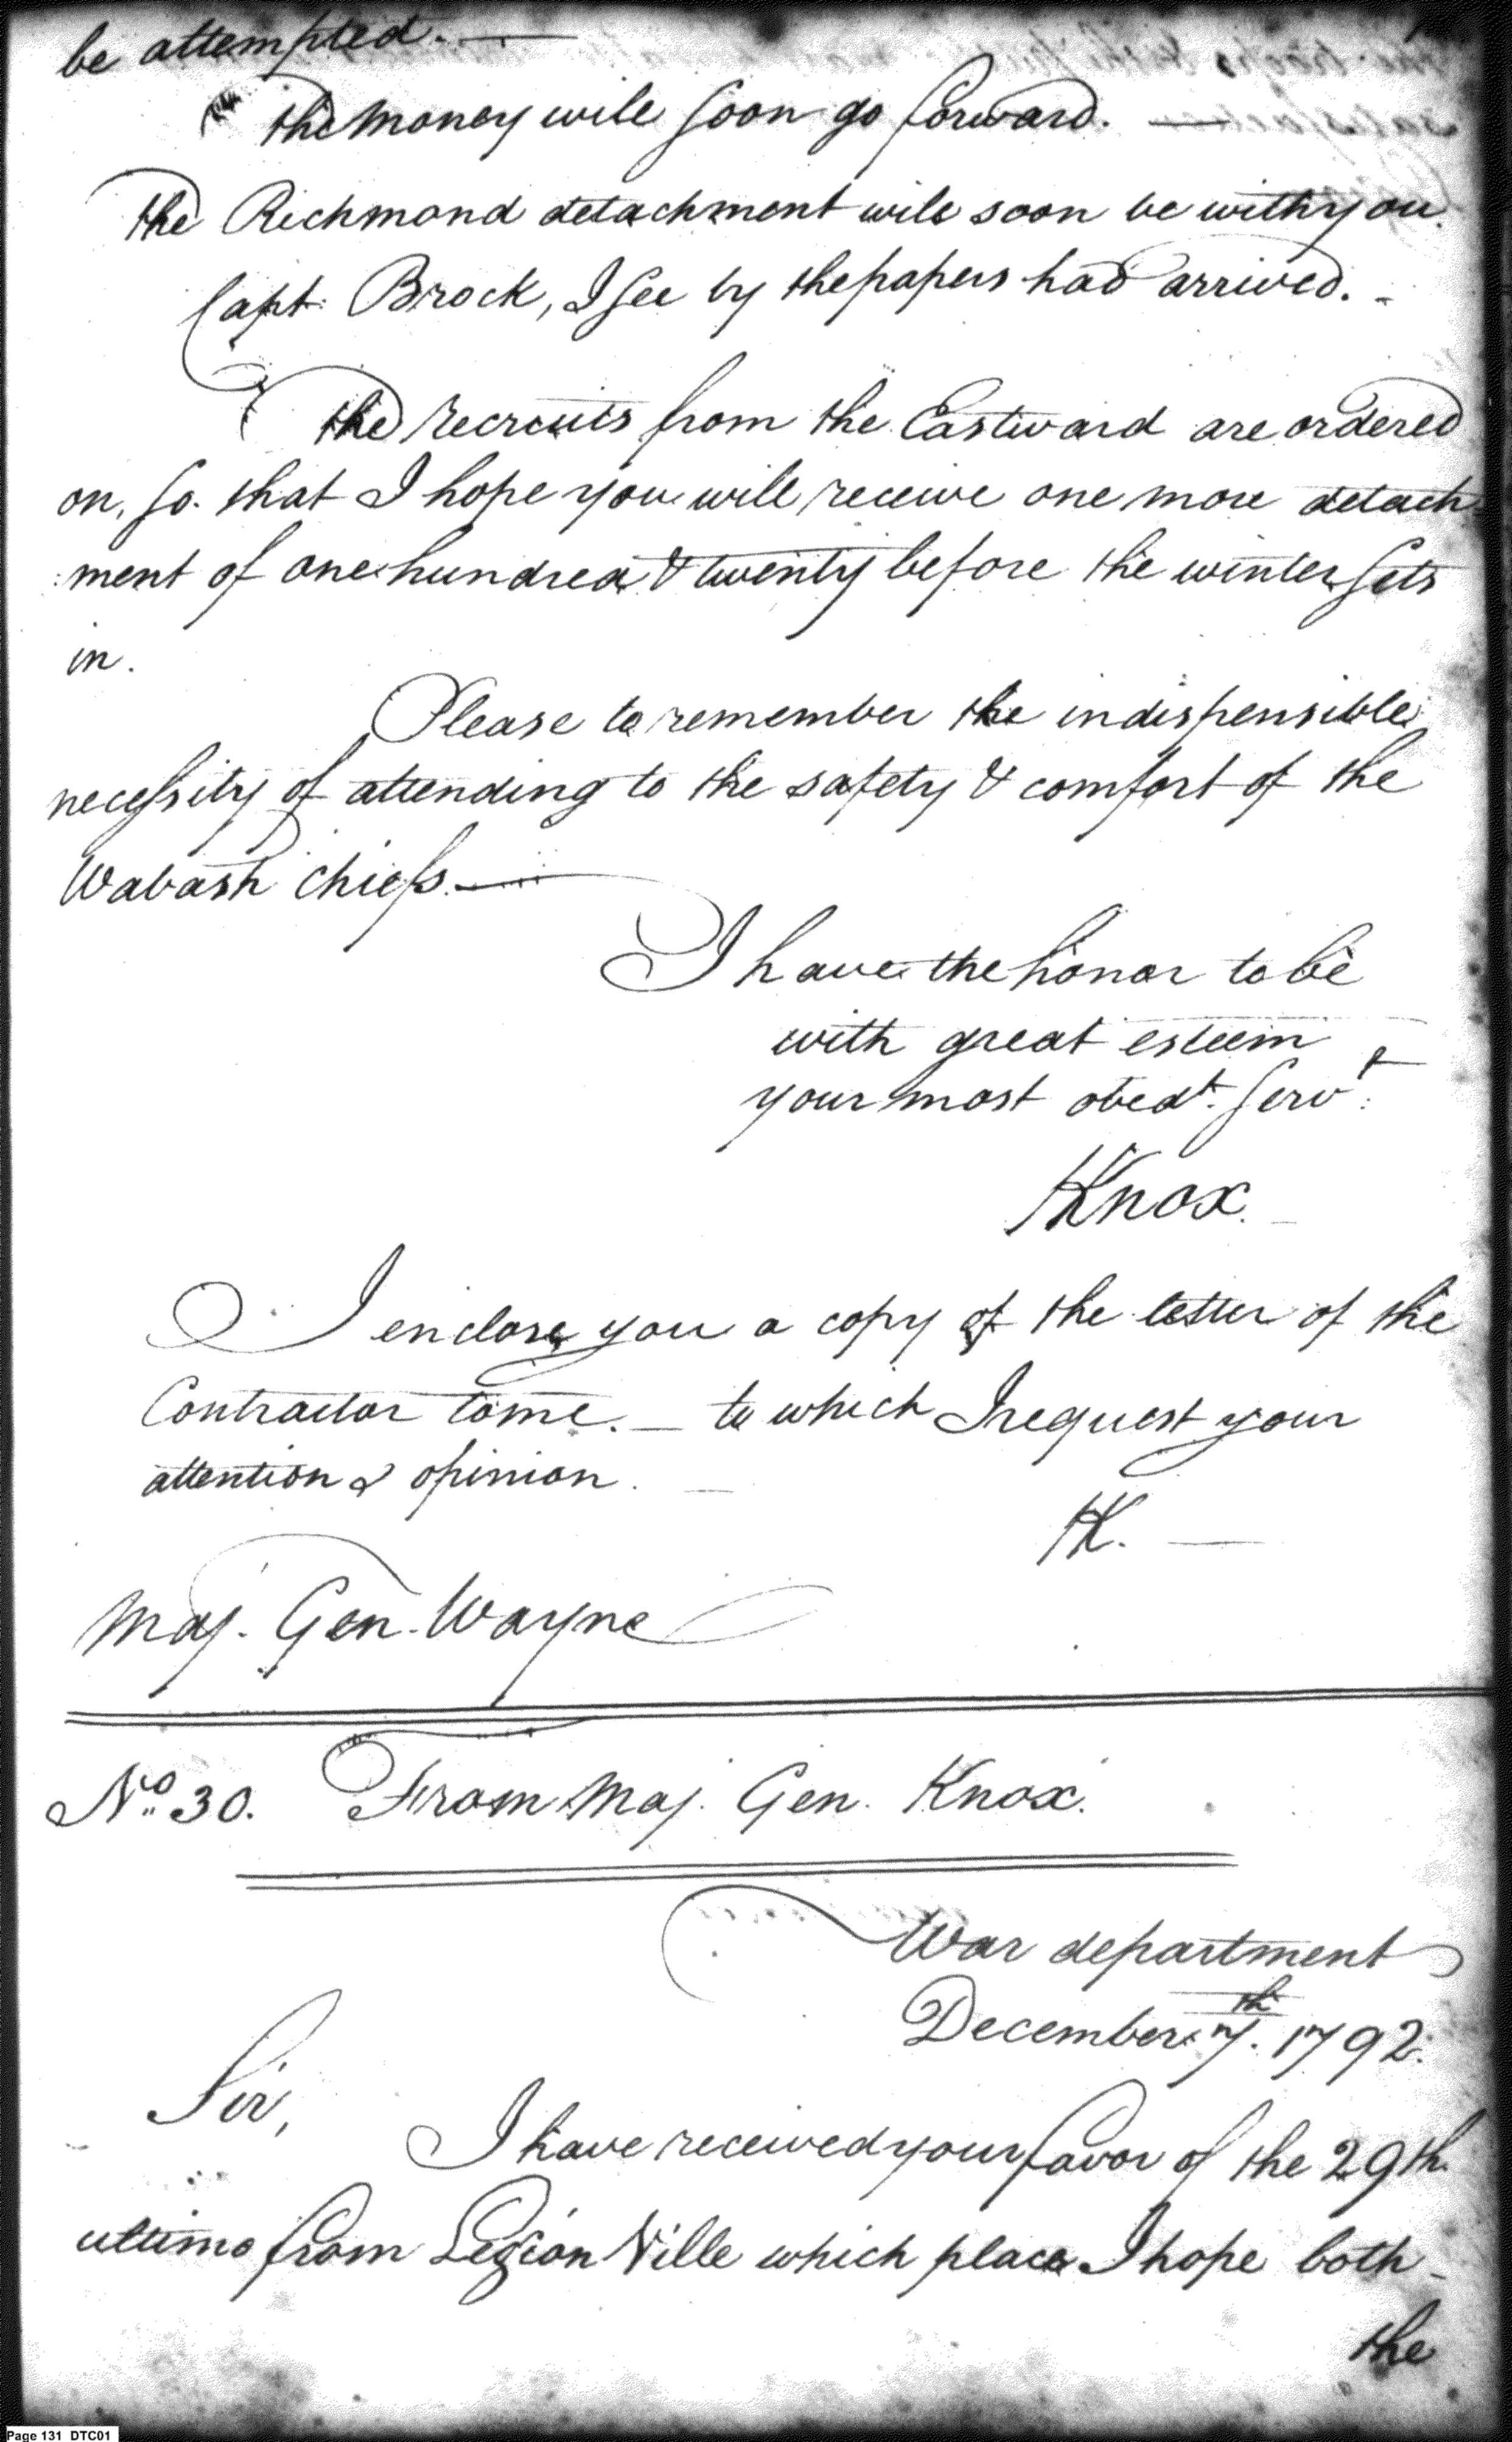 be attempted. —
The money will soon go forward. —
The Richmond detachment will soon be with you.
Capt: Brock, I see by the papers had arrived. -
The recruits from the Eastward are ordered
on, so. that I hope you will receive one more detach
:ment of one hundred & twenty before the winter sets
in.
Please to remember the indispensible
necessity of attending to the safety & comfort of the
Wabash chiefs. —
I have the honor to be
with great esteem
your most obedt. Servt:
HKnox.
I enclose you a copy of the letter of the
Contractor to me. — to which I request your
attention & opinion. —
HK. —
Maj. Gen. Wayne
No. 30. From Maj. Gen. Knox.
War department
December 7th. 1792.
Sir,
I have received your favor of the 29th.
ultimo from Legion Ville which place I hope both -
the
Page 131 DTC01